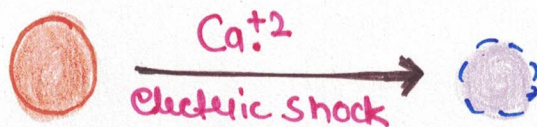 Ca+2
electric shock